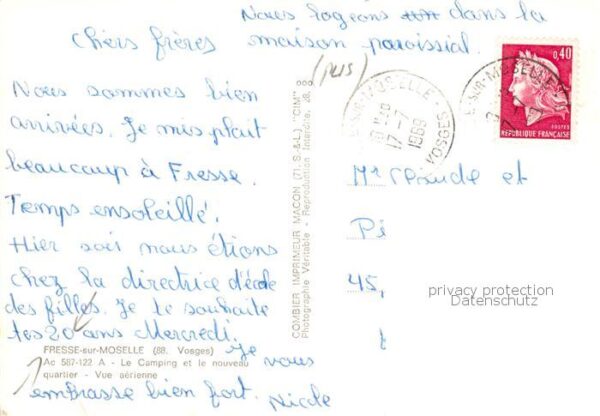 Nous logeons dans la
Chers frères maison paroissial.
(PLIS)
Nous sommes bien
arrivées. Je mis plait
beaucoup à Fresse.
Temps ensoleillé.
Hier soir nous étions
chez la directrice d'école
des filles. Je te souhaite
tes 20 ans Mercredi.
Je vous
embrasse bien fort. Nicole
FRESSE-sur-MOSELLE (88. Vosges)
Ac 587-122 A - Le Camping et le nouveau
quartier - Vue aérienne
COMBIER IMPRIMEUR MACON (71. S.-&-L.) "CIM"
Photographie Véritable - Reproduction Interdite.
SUR-MOSELLE
17-7
1969
VOSGES
0,40
POSTES
REPUBLIQUE FRANÇAISE
SUR-MOSELLE
Mr Claude et
Pi
45,
privacy protection
Datenschutz